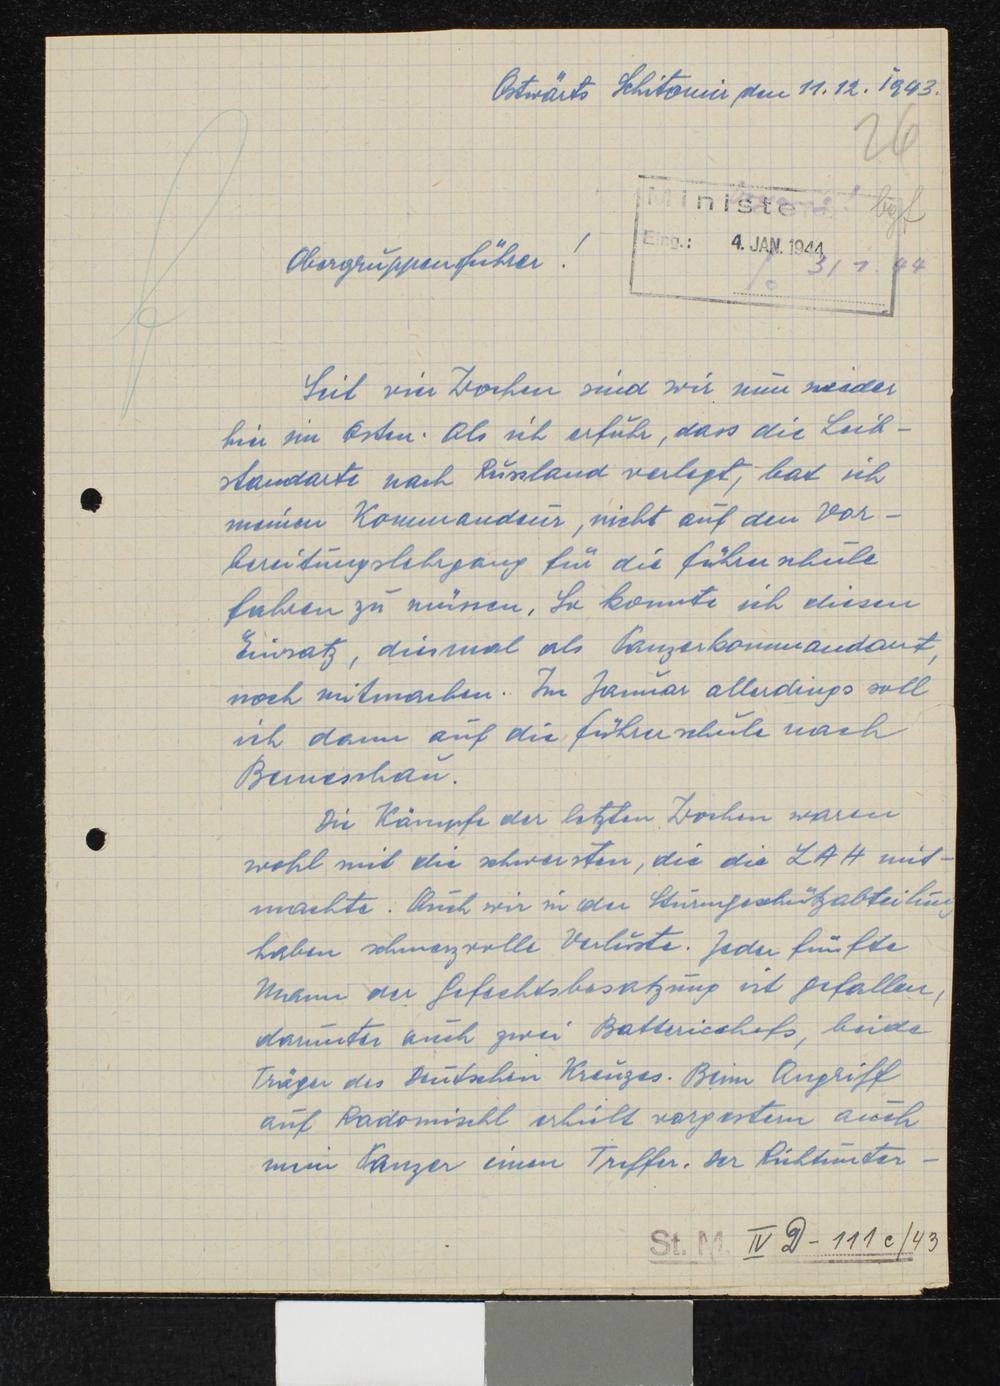 Ostwärts Schitomir den 11.12.1943.
26
Ministe
bgf
Eing.: 4. JAN. 1944
31 1. 44
Obergruppenführer!
Seit vier Wochen sind wir nun wieder
hier im Osten. Als ich erfuhr, dass die Leib-
standarte nach Russland verlegt, bat ich
meinen Kommandeur, nicht auf den Vor-
bereitungslehrgang für die Führerschule
fahren zu müssen. So konnte ich diesen
Einsatz, diesmal als Panzerkommandant,
noch mitmachen. Im Januar allerdings soll
ich dann auf die Führerschule nach
Beneschau.
Die Kämpfe der letzten Wochen waren
wohl mit die schwersten, die die LAH mit-
machte. Auch wir in der Sturmgeschützabteilung
haben schmerzvolle Verluste. Jeder fünfte
Mann der Gefechtsbesatzung ist gefallen,
darunter auch zwei Batteriechefs, beide
Träger des Deutschen Kreuzes. Beim Angriff
auf Radomischl erhielt vorgestern auch
mein Panzer einen Treffer. Der Richtunter-
St. M. IV D - 111 c/43